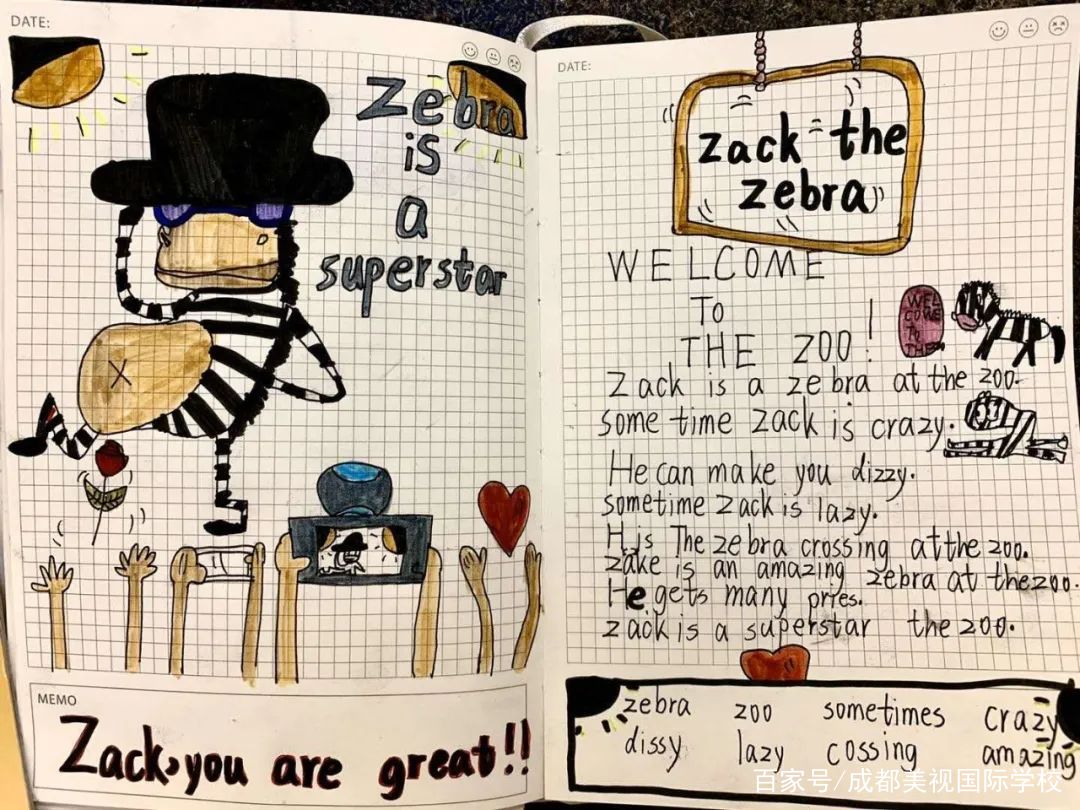 DATE:
Zebra
is
a
superstar
MEMO
Zack, you are great!!
DATE:
zack the
zebra
WELCOME
TO
THE ZOO!
WEL
COME
TO
THE
Zack is a zebra at the zoo.
some time zack is crazy.
He can make you dizzy.
sometime zack is lazy.
H is The zebra crossing at the zoo.
zake is an amazing zebra at the zoo.
He gets many pries.
zack is a superstar the zoo.
zebra zoo sometimes crazy
dissy lazy cossing amazing
百家号/成都美视国际学校